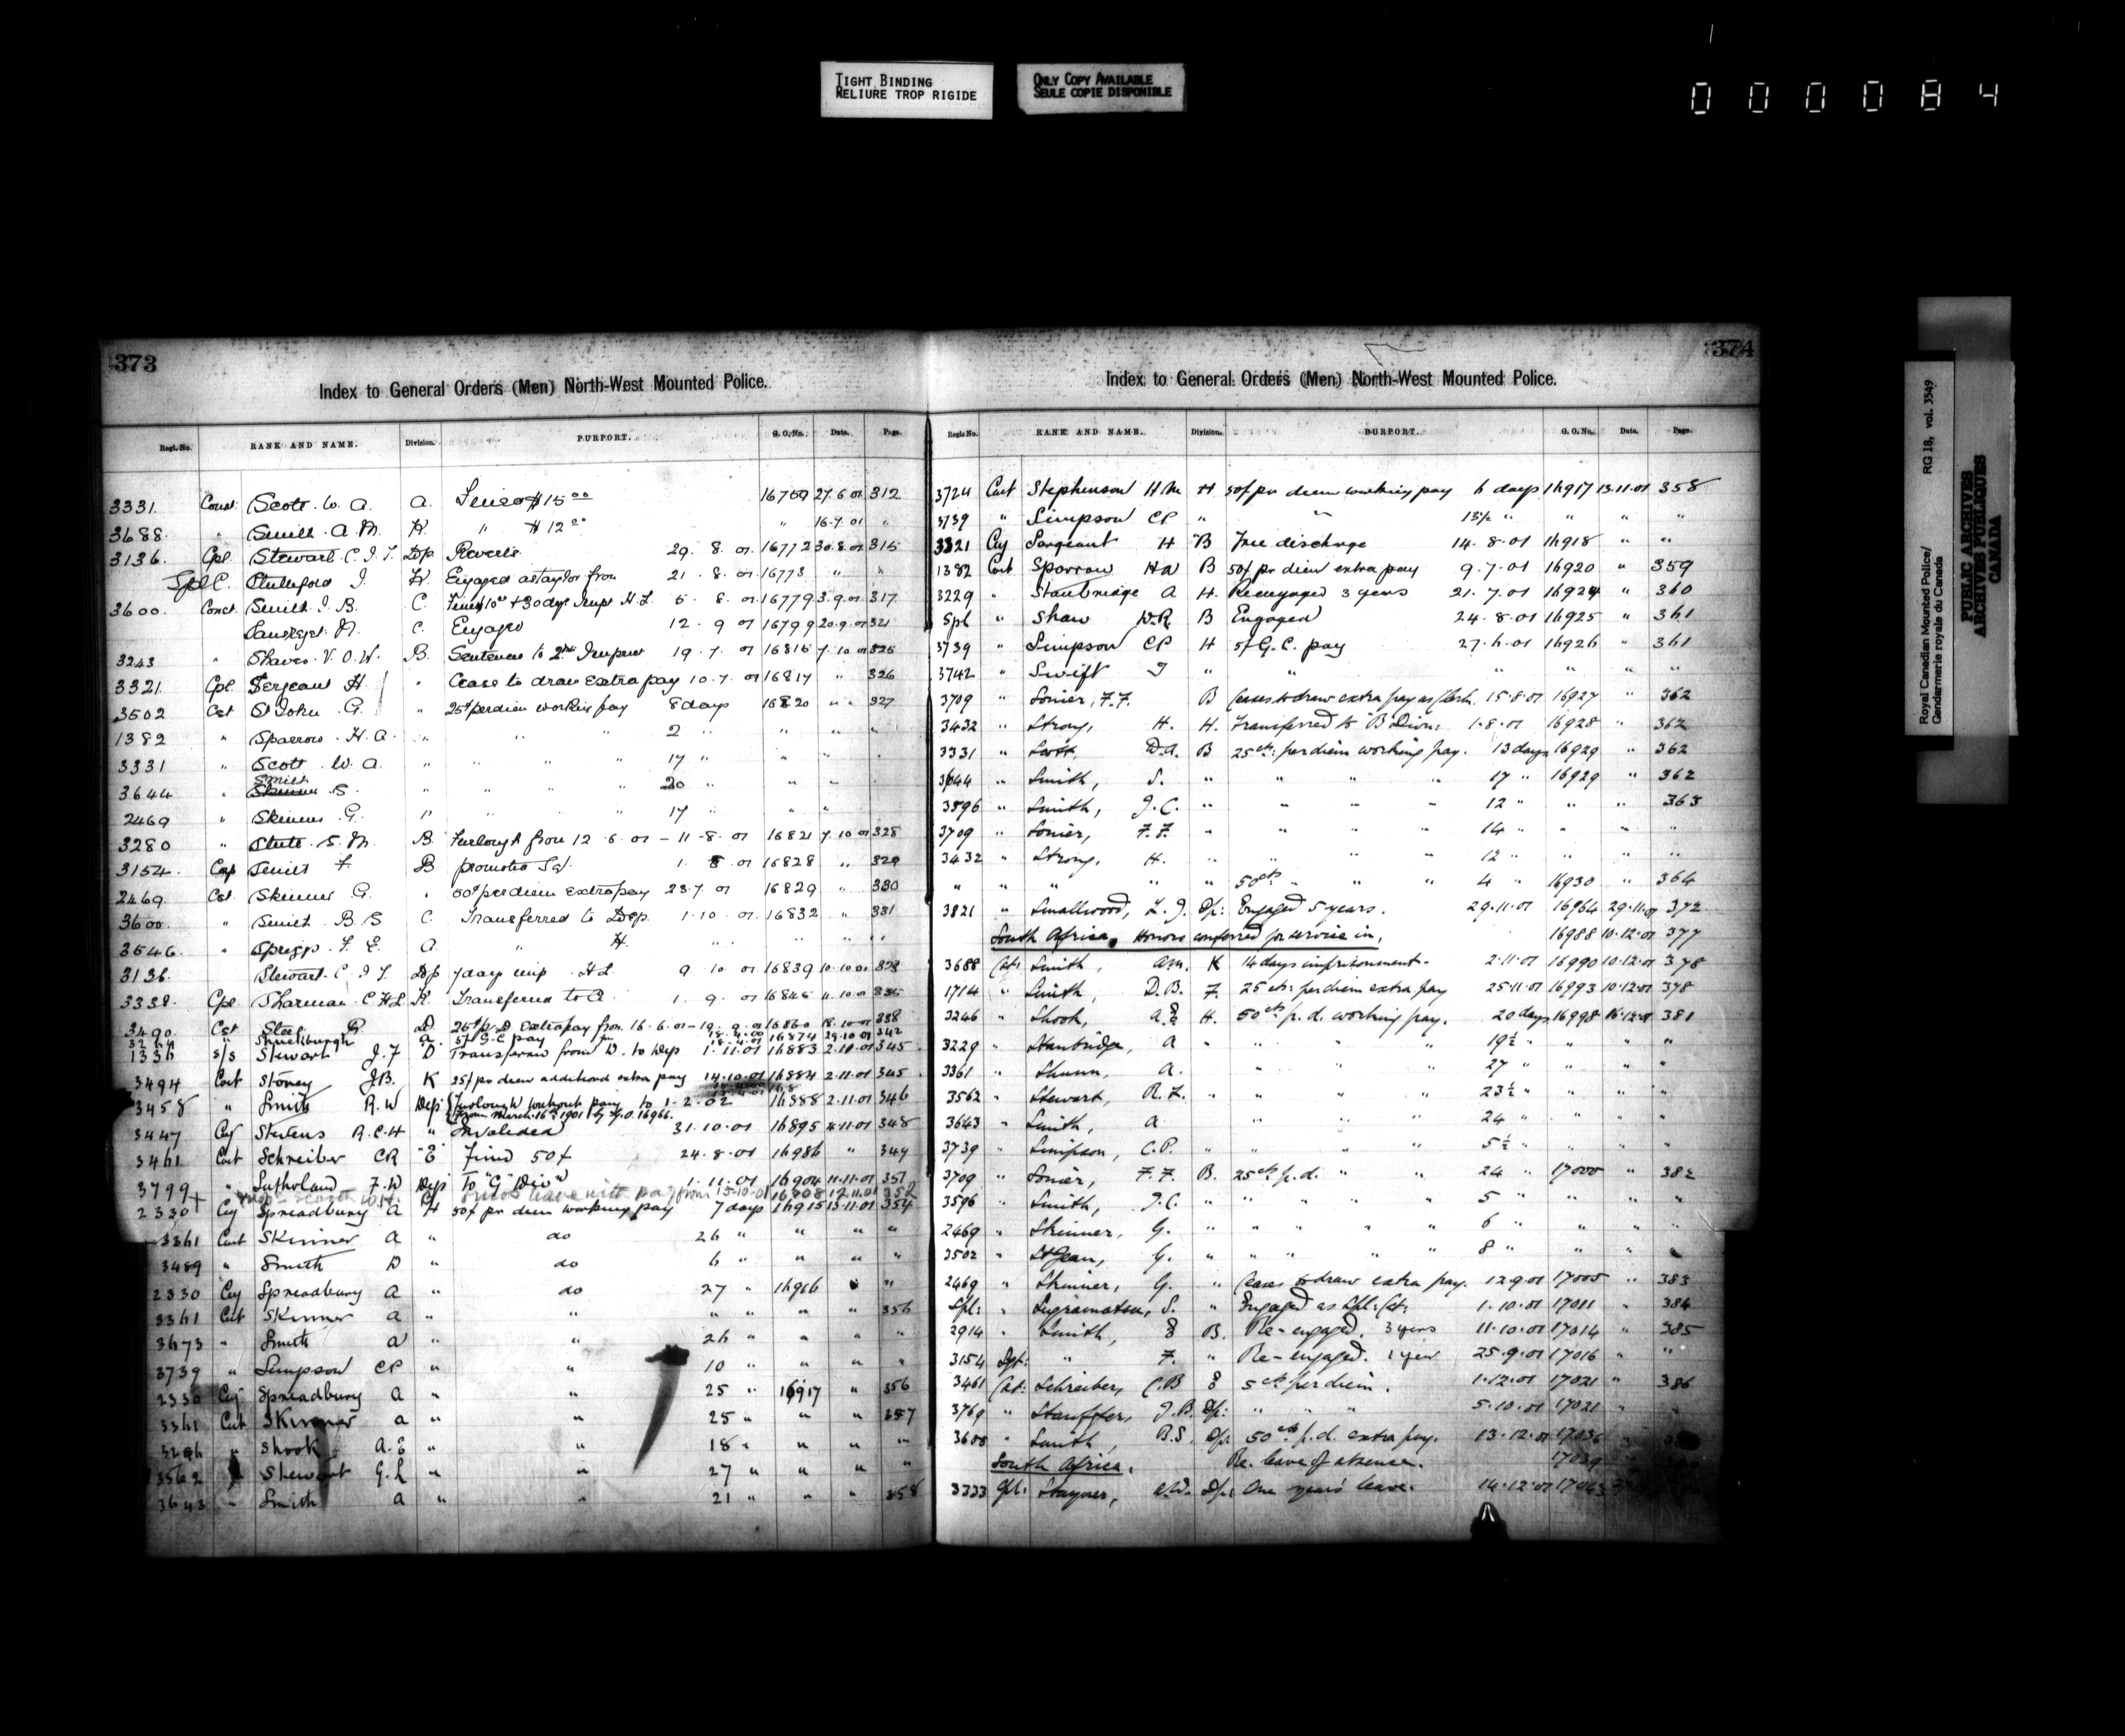 TIGHT BINDING
RELIURE TROP RIGIDE
ONLY COPY AVAILABLE
SEULE COPIE DISPONIBLE
000084
373
Index to General Orders (Men) North-West Mounted Police.
Regt. No. RANK AND NAME. Division. PURPORT. G. O. No. Date. Page.
3331 Const. Scott. W. A. A. Fined $15 00 16759 27.6.01 312
3688 " Smith. A. M. K. " $12 00 " 16.7.01 "
3136 Cpl. Stewart. C. J. T. Dep Reverts 29. 8. 01 16772 30.8.01 315
Spl C. J. K. Engaged as taylor from 21. 8. 01 16773 " "
3600. Const. Smith. J. B. C. Fined $10 00 + 30 days Impt H.L. 5. 8. 01 16779 3.9.01 317
M. C. Engaged 12. 9 01 16799 20.9.01 321
3243 " V. O. W. B. Sentence to 2 19. 7. 01 16815 7.10.01 325
3321 Cpl. Sergeant H. " Cease to draw extra pay 10.7. 01 16817 " 326
3502 Cst St John. G. " 25¢ per diem working pay 8 days 16820 " " 327
1382 " Sparrow. H. A. " " " 2 " " " "
3331 " Scott. W. A. " " " " 17 " " "
3644 " Smith S. " " " " 20 " " "
2469 " Skinner. G. " " " " 17 " " "
3280 " S. M. B. Furlough from 12. 6. 01 – 11-8. 01 16821 7.10.01 328
3154 Corp Smith F. B promoted Sgt. 1. 8. 01 16828 " 329
2469 Cst. Skinner G. " 50¢ per diem extra pay 23.7. 01 16829 " 330
3600 " Smith. B. S C. Transferred to Dep. 1.10. 01 16832 " 331
3546 " Spriggs. F. E. A. " H. " " " " "
3136 Stewart. C. J. T. Dep 7 days imp. H L 9. 10. 01 16839 10.10.01 333
3338 Cpl. Sharman. C H L K. Transferred to C 1. 9. 01 16845 11.10.01 335
3490 Cst Steel R. D. 25¢ p. D. Extra pay from 16.6.01 – 19. 9. 01 16860 18.10.01 338
Shuckburgh A. 5¢ G.C pay 16874 29.10.01 342
1336 S/S Stewart J. F D Transferred from D. to Dep 1.11.01 16883 2.11.01 345
3494 Const Storey J.B. K 25¢ per diem additional extra pay 14.10.01 16884 2.11.01 345
3458 " Smith R.W Dep Furlough without pay to 1-2-02 16888 2.11.01 346
From March 16th 1901 by G.O. 16966.
3447 Corp Stevens A.C.H " Invalided 31.10.01 16895 4.11.01 348
3461 Const Schreiber CR "E" Fined 50¢ 24.8.01 16986 " 349
3799 " Sutherland F.W Dep To "G" Divn 1.11.01 16904 11.11.01 351
leave with pay from 15-10-01 16908 12.11.01 352
2330 Corp Spreadbury A H 50¢ per diem working pay 7 days 16915 13.11.01 354
3361 Const Skinner A " do 26 " " " "
3489 " Smith D " do 6 " " " "
2330 Corp Spreadbury A " do 27 " 16916 " "
3361 Const Skinner A " " " " " " 356
3673 " Smith A " " 26 " " " "
3739 " Simpson CP " " 10 " " " "
2330 Corp Spreadbury A " " 25 " 16917 " 356
3361 Const Skinner A " " 25 " " " 357
3246 " Shook A.E " " 18 " " " "
3562 " Stewart G.L " " 27 " " " "
3643 " Smith A " " 21 " " " 358
374
Index to General Orders (Men) North-West Mounted Police.
Regt. No. RANK AND NAME. Division. PURPORT. G. O. No. Date. Page.
3724 Const Stephenson H M H 50¢ per diem working pay 6 days 16917 13.11.01 358
3739 " Simpson CP " " 13½ " " " "
3321 Corp Sargeant H "B Free discharge 14. 8.01 16918 " "
1382 Const Sparrow HA B 50¢ per diem extra pay 9.7.01 16920 " 359
3229 " Stanbridge A H Reengaged 3 years 21.7.01 16924 " 360
Spl " Shaw W.R. B Engaged 24.8.01 16925 " 361
3739 " Simpson CP H 5¢ G.C. pay 27.6.01 16926 " 361
3742 " Swift T " " " " " "
3709 " Sonier, F.F. B Ceases to draw extra pay as Clerk. 15.8.01 16927 " 362
3432 " Strong, H. H. Transferred to "B" Divn: 1.8.01 16928 " 362
3331 " Scott, W.A. B 25 cts: per diem working pay. 13 days 16929 " 362
3644 " Smith, S. " " " " 17 " 16929 " 362
3596 " Smith, J.C. " " " " 12 " " " 363
3709 " Sonier, F.F. " " " " 14 " " " "
3432 " Strong, H. " " " " 12 " " " "
" " " " " 50 cts " " " 4 " 16930 " 364
3821 " Smallwood, L.J. Dp: Engaged 5 years. 29.11.01 16964 29.11.01 372
South Africa, Honors conferred for service in, 16988 10.12.01 377
3688 Cst: Smith, A.M. K 14 days imprisonment. 2.11.01 16990 10.12.01 378
1714 " Smith, D.B. F. 25 cts: per diem extra pay 25.11.01 16993 10.12.01 378
3246 " Shook, A.E H. 50 cts p.d. working pay. 20 days 16998 16.12.01 381
3229 " Stanbridge, A " " " " 19½ " " " "
3361 " Skinner, A. " " " 27 " " " "
3562 " Stewart, R.L. " " " " 23½ " " " "
3643 " Smith, A. " " 24 " " " "
3739 " Simpson, C.P. " " " " 5½ " " " "
3709 " Sonier, F.F. B. 25 cts p.d. " " 24 " 17000 " 382
3596 " Smith, J.C. " " " " " 5 " " " "
2469 " Skinner, G. " " " " " 6 " " " "
3502 " St Jean, G. " " " " " 8 " " " "
2469 " Skinner, G. " Ceases to draw extra pay. 12.9.01 17005 " 383
Spl: " S. " Engaged as Spl: Cst: 1.10.01 17011 " 384
2914 " Smith, E B. Re-engaged. 3 years 11.10.01 17014 " 385
3154 Sgt: " F. " Re-engaged. 1 year 25.9.01 17016 " "
3461 Cst: Schreiber, C.B E 5 cts per diem. 1.12.01 17021 " 386
3769 " Stauffer, J.B. Dp: " " " 5.10.01 17021 " "
3600 " Smith, B.S. Dp: 50 cts p.d. extra pay. 13.12.01 17036
South Africa, Re. leave of absence. 17039
3333 Cpl: Stayner, A.W. Dp: One year's leave. 14.12.01
Royal Canadian Mounted Police/
Gendarmerie royale du Canada
RG 18, vol. 3549
PUBLIC ARCHIVES
ARCHIVES PUBLIQUES
CANADA